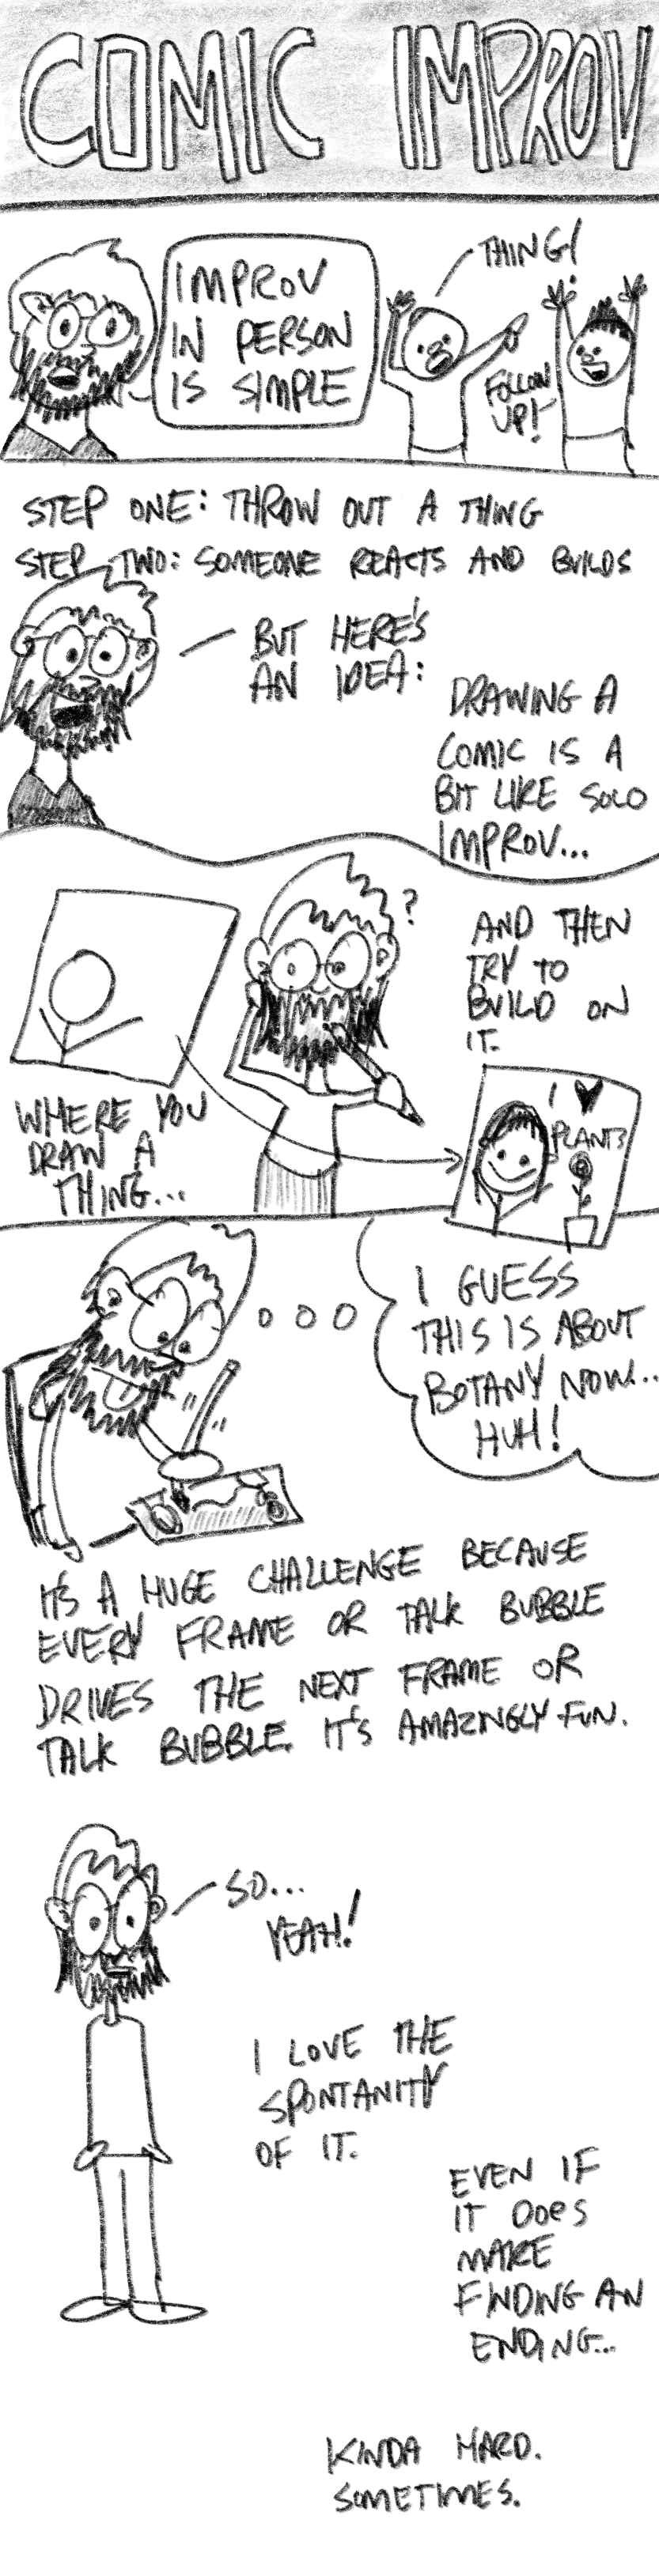 COMIC IMPROV
IMPROV
IN PERSON
IS SIMPLE
THING!
FOLLOW
UP!
STEP ONE: THROW OUT A THING
STEP TWO: SOMEONE REACTS AND BUILDS
BUT HERE'S
AN IDEA:
DRAWING A
COMIC IS A
BIT LIKE SOLO
IMPROV...
?
WHERE YOU
DRAW A
THING...
AND THEN
TRY TO
BUILD ON
IT.
I ♥
PLANTS
I GUESS
THIS IS ABOUT
BOTANY NOW...
HUH!
IT'S A HUGE CHALLENGE BECAUSE
EVERY FRAME OR TALK BUBBLE
DRIVES THE NEXT FRAME OR
TALK BUBBLE. IT'S AMAZINGLY FUN.
SO...
YEAH!
I LOVE THE
SPONTANITY
OF IT.
EVEN IF
IT DOES
MAKE
FINDING AN
ENDING...
KINDA HARD.
SOMETIMES.